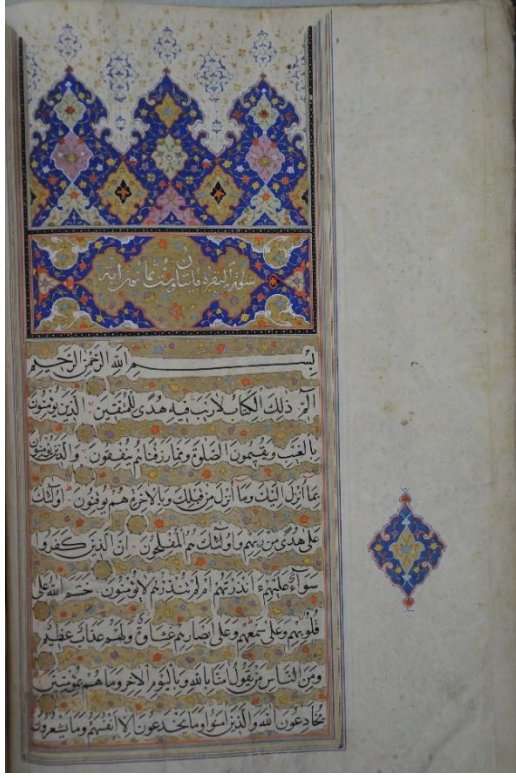 سورة البقرة مائتان وست وثمانون آية
بسم الله الرحمن الرحيم
الم ذلك الكتاب لا ريب فيه هدى للمتقين الذين يؤمنون
بالغيب ويقيمون الصلوة ومما رزقناهم ينفقون والذين يؤمنون
بما أنزل إليك وما أنزل من قبلك وبالآخرة هم يوقنون أولئك
على هدى من ربهم وأولئك هم المفلحون ان الذين كفروا
سواء عليهم ءانذرتهم ام لم تنذرهم لا يؤمنون ختم الله على
قلوبهم وعلى سمعهم وعلى أبصارهم غشاوة ولهم عذاب عظيم
ومن الناس من يقول امنا بالله وباليوم الاخر وما هم بمؤمنين
يخادعون الله والذين امنوا وما يخدعون الا انفسهم وما يشعرون